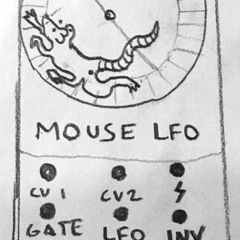 MOUSE LFO
CV1 CV2
GATE LFO INV